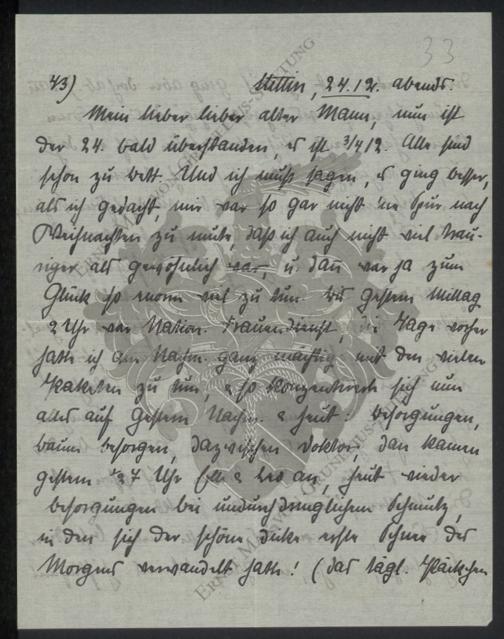 33
43) Stettin, 24.12. abends.
Mein lieber lieber alter Mann, nun ist
der 24. bald überstanden, es ist 3/4 12. Alle sind
schon zu bett. Und ich muß sagen, es ging besser,
als ich gedacht, mir war so gar nicht ne Spur nach
Weihnachten zu mute, daß ich auch nicht viel trau-
riger als gewöhnlich war u dan war ja zum
Glück so enorm viel zu tun. bis gestern Mittag
2 Uhr war Nation. Frauendienst, die Tage vorher
hatte ich am Nachm. ganz mächtig mit den vielen
Paketen zu tun, u so konzentrierte sich nun
alles auf gestern Nachm. u heut: besorgungen,
baum besorgen, dazwischen Doktor, dan kamen
gestern 1/2 7 Uhr an, heut wieder
besorgungen bei undurchdringlichem Schmutz,
in den sich der schöne dicke erste Schnee des
Morgens verwandelt hatte! (das tägl. Päckchen
ERNST MORITZ GRUNDIUS-STIFTUNG